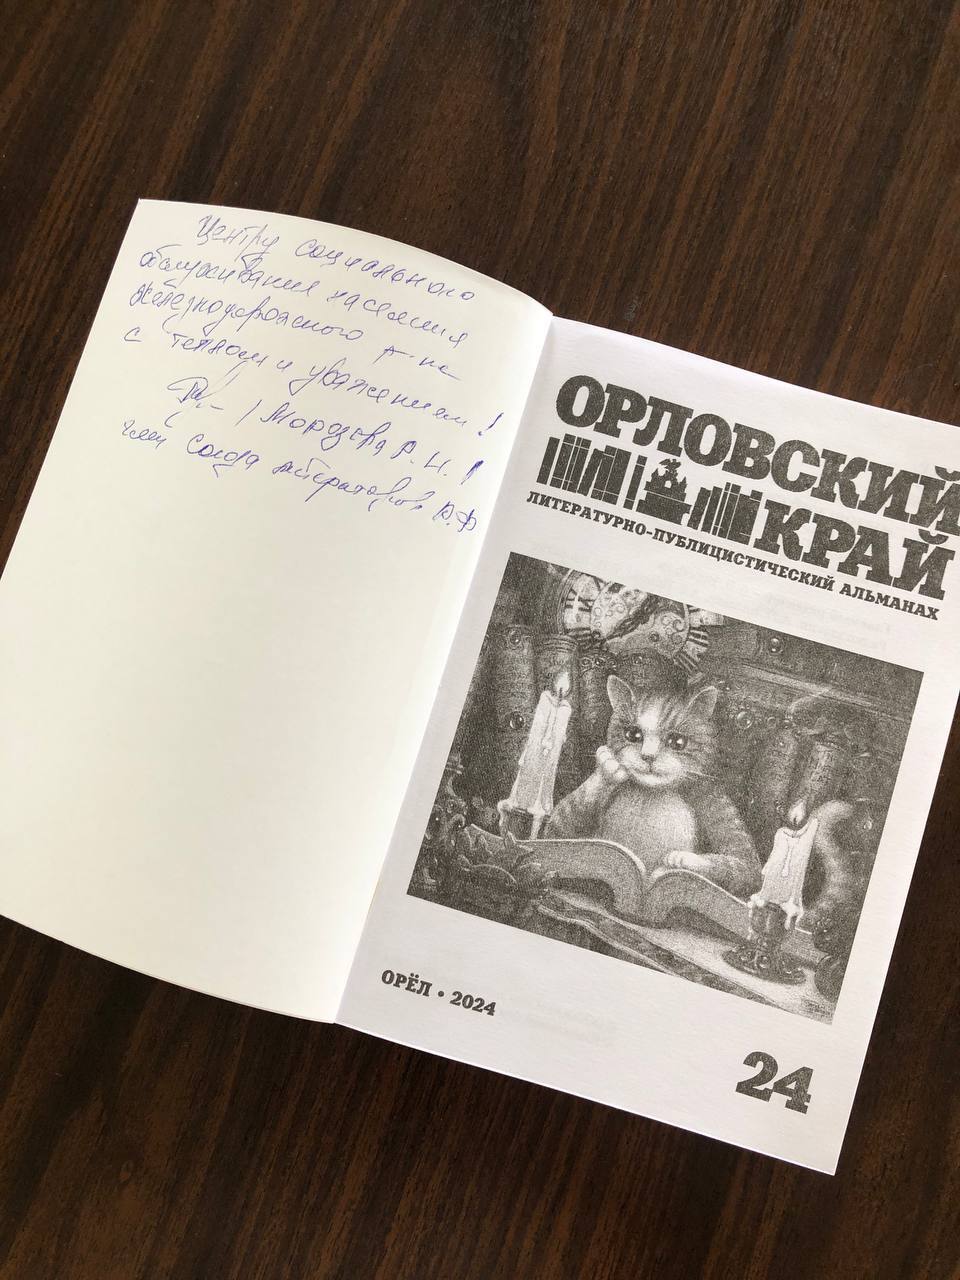 Центру социального
обслуживания населения
Железнодорожного р-на
с теплом и уважением!
/Морозова Р.Н./
член союза литераторов Р.Ф
ОРЛОВСКИЙ
КРАЙ
ЛИТЕРАТУРНО-ПУБЛИЦИСТИЧЕСКИЙ АЛЬМАНАХ
ОРЁЛ • 2024
24